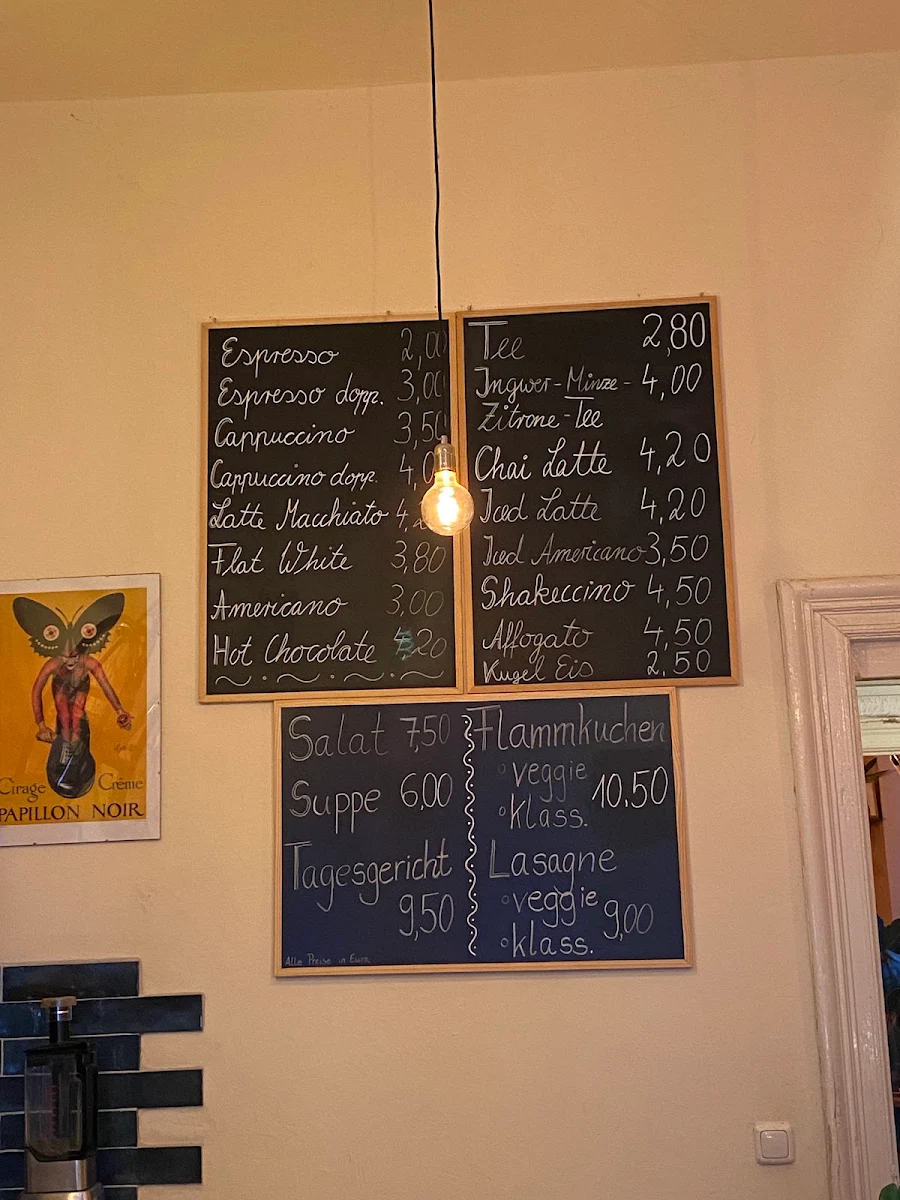 Espresso 2,00
Espresso dopp. 3,00
Cappuccino 3,50
Cappuccino dopp.
Latte Macchiato
Flat White 3,80
Americano 3,00
Hot Chocolate
Tee 2,80
Ingwer-Minze- 4,00
Zitrone-Tee
Chai Latte 4,20
Iced Latte 4,20
Iced Americano 3,50
Shakeccino 4,50
Affogato 4,50
Kugel Eis 2,50
Salat 7,50
Suppe 6,00
Tagesgericht
9,50
Alle Preise in Euro
Flammkuchen
veggie
10,50
klass.
Lasagne
veggie
9,00
klass.
Cirage Crême
PAPILLON NOIR